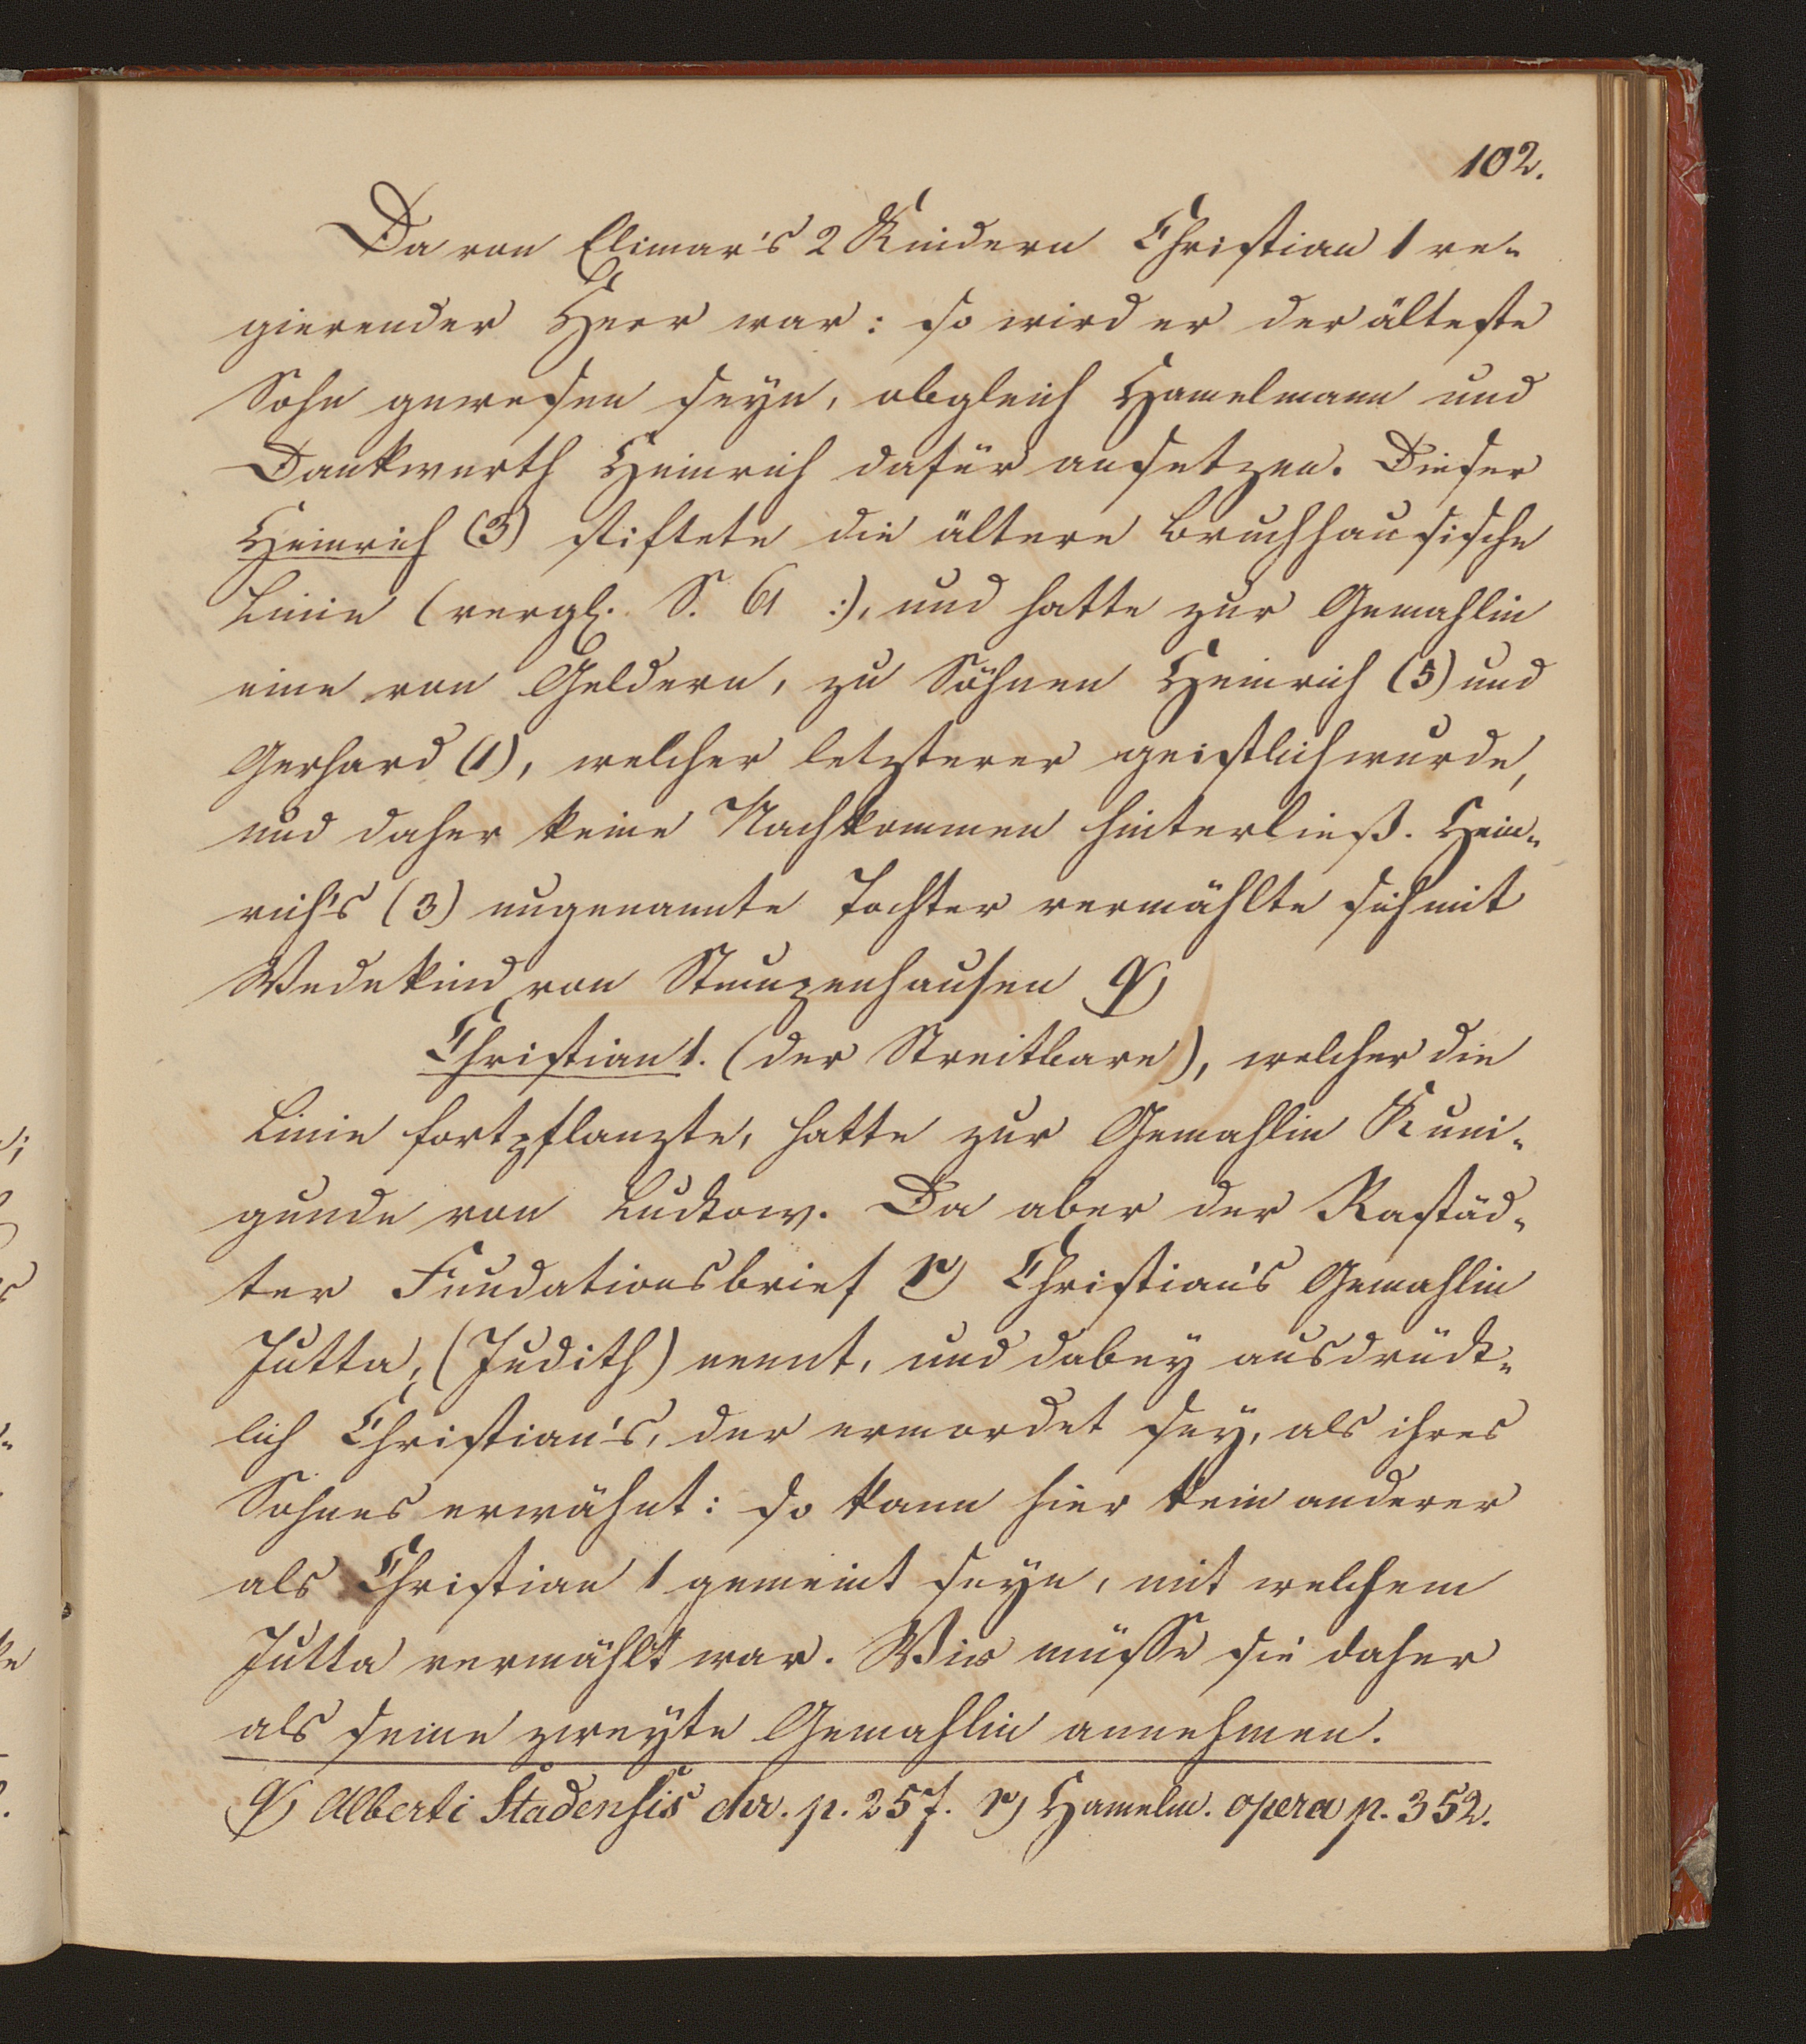 102.
Da von Elimar's 2 Kindern Christian 1 re-
gierender Herr war: so wird er der älteste
Sohn gewesen seyn, obgleich Hamelmann und
Dankwerth Heinrich dafür ansetzen. Dieser
Heinrich (3) stiftete die ältere Bruchhausische
Linie (vergl. S. 61 :), und hatte zur Gemahlin
eine von Geldern, zu Söhnen Heinrich (5) und
Gerhard (1), welcher letzterer geistlich wurde,
und daher keine Nachkommen hinterließ. Hein-
rich's (3) ungenannte Tochter vermählte sich mit
Wedekind von Stumpenhausen q)
Christian 1. (der Streitbare), welcher die
Linie fortpflanzte, hatte zur Gemahlin Kuni-
gunde von Luckow. Da aber der Rastäd-
ter Fundationsbrief r) Christian's Gemahlin
Jutta, (Judith) nennt, und dabey ausdrück-
lich Christian's, der ermordet sey, als ihres
Sohnes erwähnt: so kann hier kein anderer
als Christian 1 gemeint seyn, mit welchem
Jutta vermählt war. Wir müsse sie daher
als seine zweyte Gemahlin annehmen.
q) Alberti Stadensis chr. p. 257. r) Hamelm. opera p. 352.